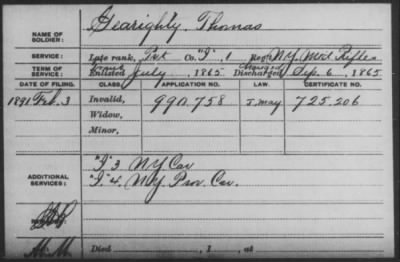 NAME OF SOLDIER: Gearighty, Thomas
SERVICE: Late rank, Pvt Co. "I", 1 Reg't N.Y. Mtd Rifles
TERM OF SERVICE: Enlisted July, 1865 Discharged Sep. 6, 1865
DATE OF FILING. CLASS. APPLICATION NO. LAW. CERTIFICATE NO.
1891 Feb. 3 Invalid, 990.758 J. may 725.206
Widow,
Minor,
"I" 3 NY Cav
ADDITIONAL SERVICES: "I" 4. N.Y. Prov. Cav.
Died , 1 , at